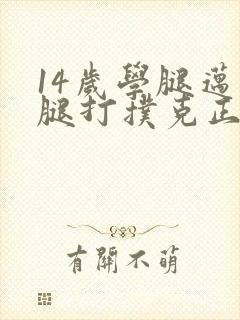 14歲學腿邁
腿打撲克正
有關不萌